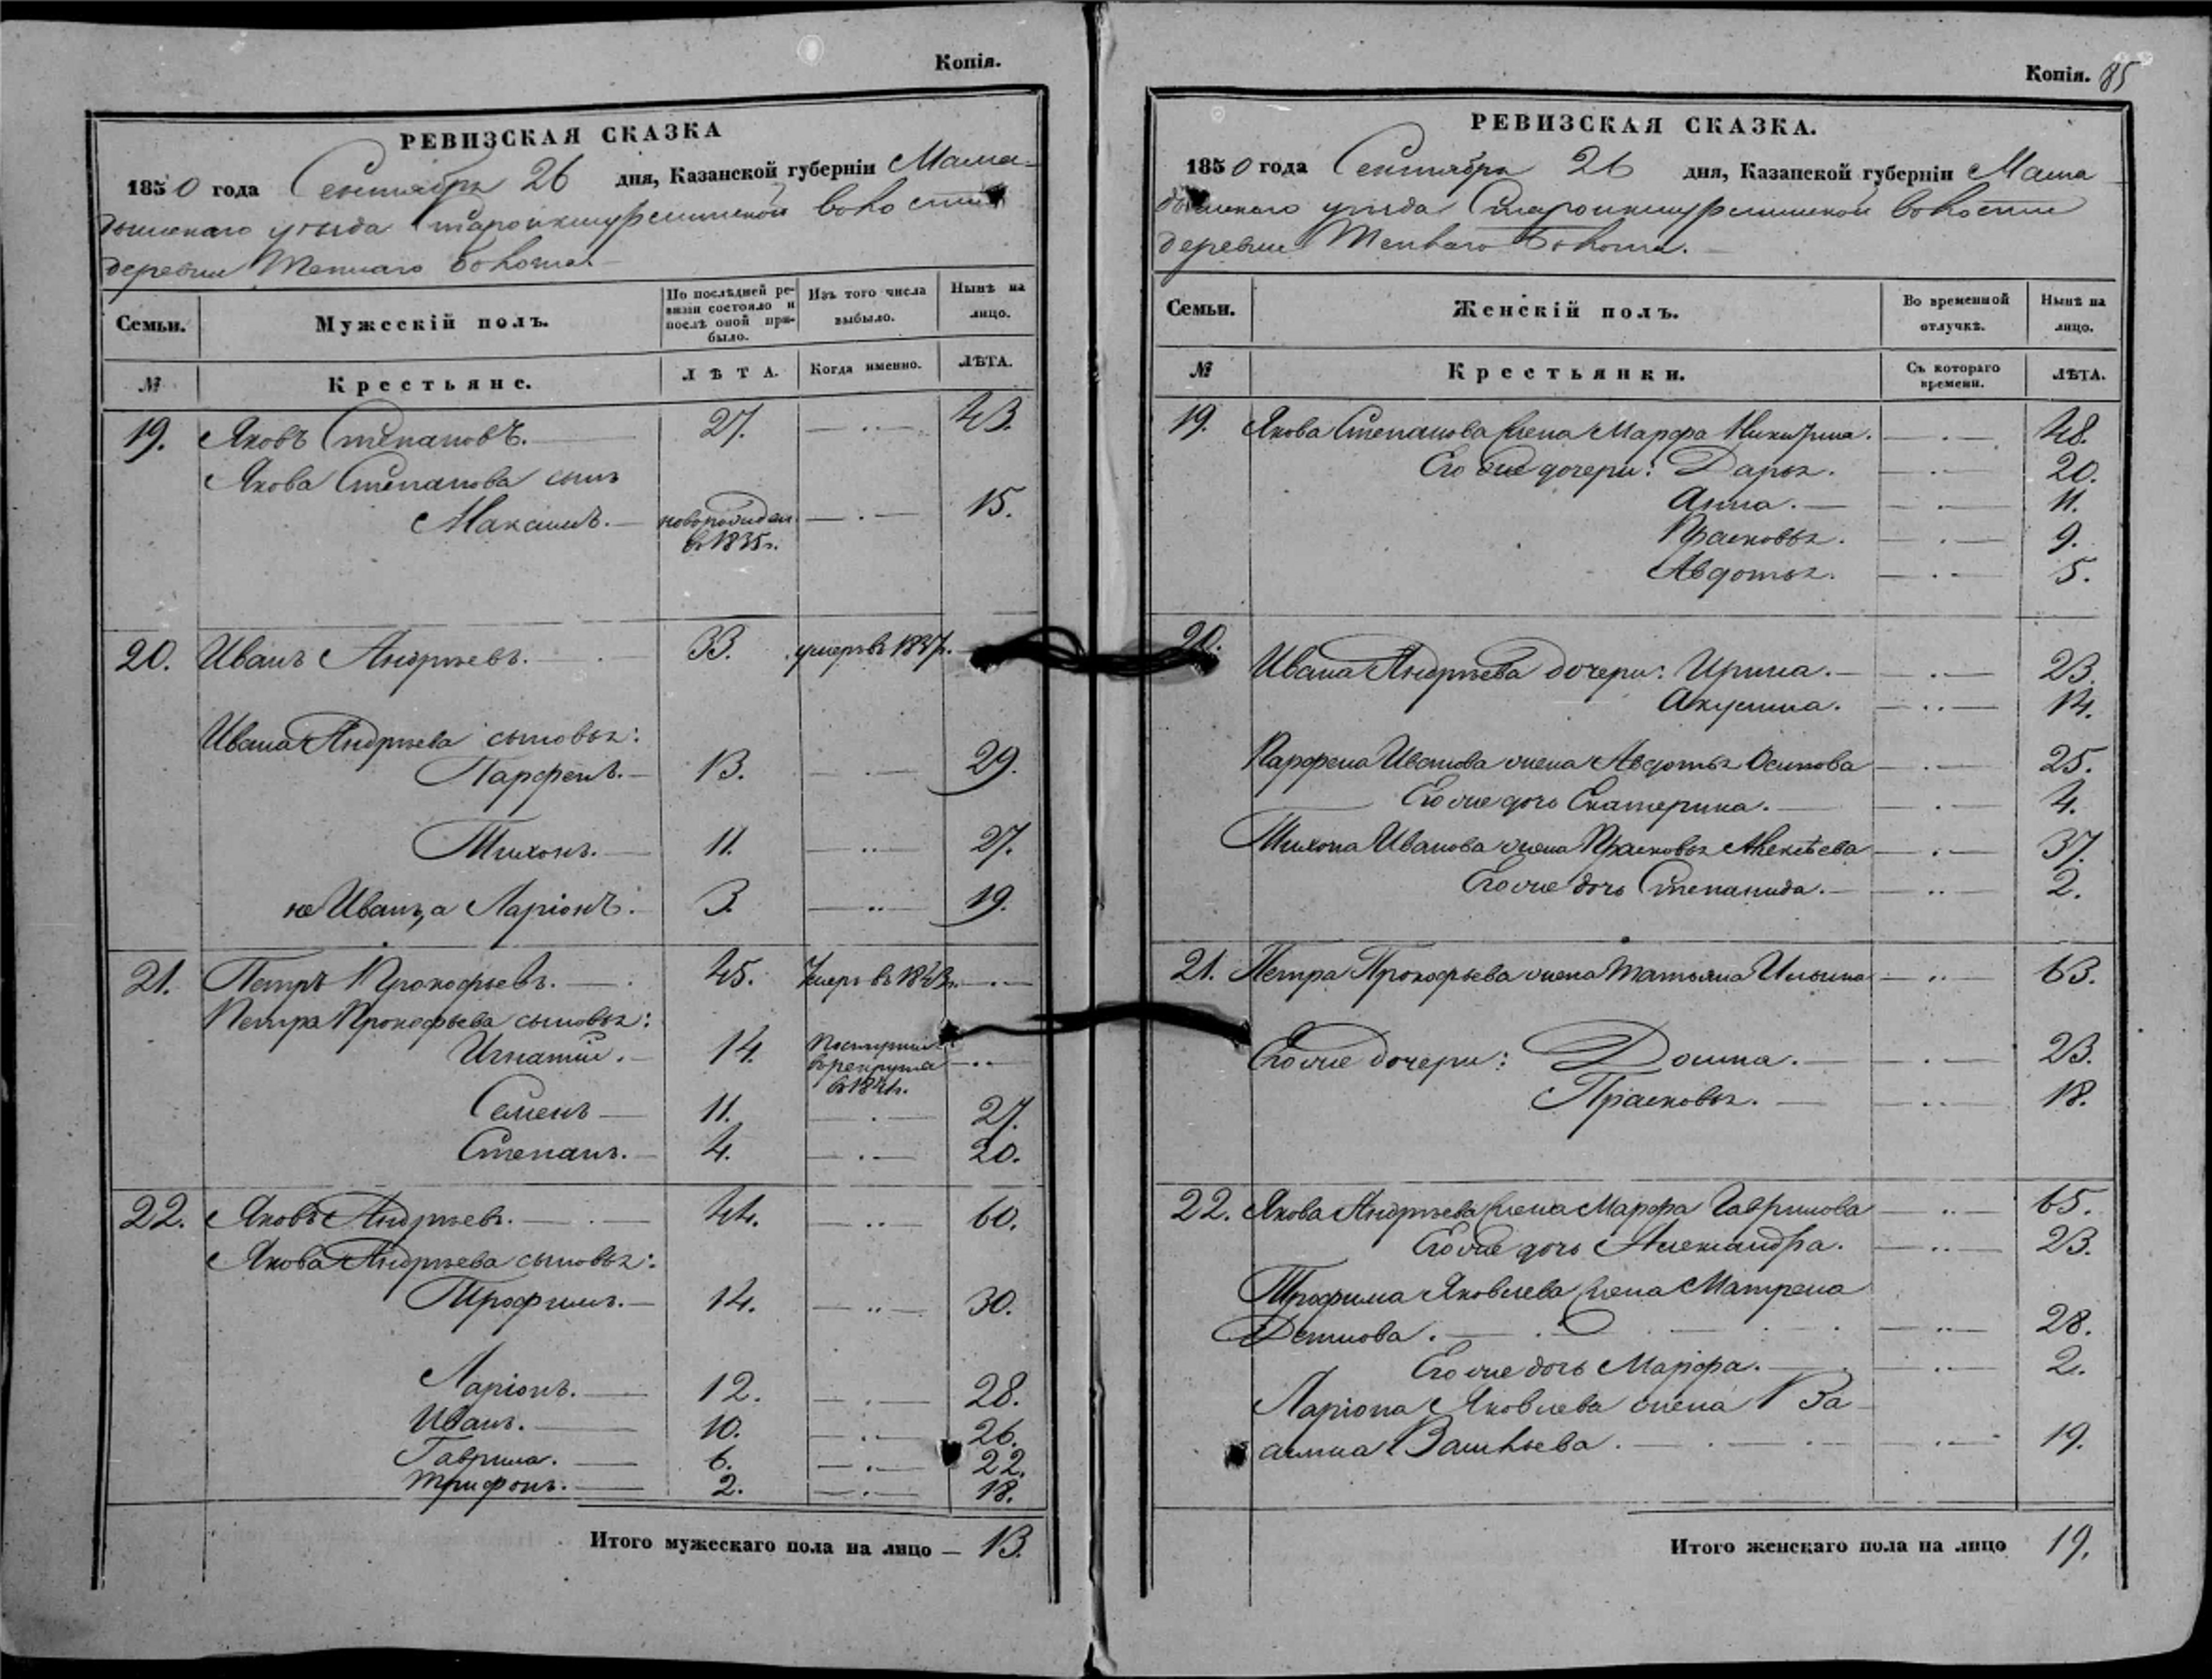 Копія.
РЕВИЗСКАЯ СКАЗКА
1850 года Сентября 26 дня, Казанской губерніи Мама-
дышскаго уѣзда Староикшурминской волости
деревни
Семьи.
Мужескій полъ.
По послѣдней ре-
визіи состояло и
послѣ оной при-
было.
Изъ того числа
выбыло.
Нынѣ на
лицо.
№
Крестьяне.
ЛѢТА.
Когда именно.
ЛѢТА.
19. Яковъ Степановъ. 27. 43.
Якова Степанова сынъ
Максимъ. новорожден 15.
въ 1835г.
20. Иванъ Андрѣевъ. 33. умеръ въ 1837г.
Ивана Андрѣева сыновья:
Парфенъ. 13. 29.
Тихонъ. 11. 27.
не Иванъ, а Ларіонъ. 3. 19.
21. Петръ Прокофьевъ. 45. Умеръ въ 1843г.
Петра Прокофьева сыновья:
Игнатій. 14. Поступилъ
въ рекруты
въ
Семенъ 11. 27.
Степанъ. 4. 20.
22. Яковъ Андрѣевъ. 44. 60.
Якова Андрѣева сыновья:
Трофимъ. 14. 30.
Ларіонъ. 12. 28.
Иванъ. 10. 26.
Гаврила. 6. 22.
Трифонъ. 2. 18.
Итого мужескаго пола на лицо — 13.
Копія. 85
РЕВИЗСКАЯ СКАЗКА.
1850 года Сентября 26 дня, Казанской губерніи Мама
дышскаго уѣзда Староикшурминской волости
деревни
Семьи.
Женскій полъ.
Во временной
отлучкѣ.
Нынѣ на
лицо.
№
Крестьянки.
Съ котораго
времени.
ЛѢТА.
19. Якова Степанова жена Марфа Никитина. 48.
Его же дочери: Дарья. 20.
Анна. 11.
Прасковья. 9.
Авдотья. 5.
20.
Ивана Андрѣева дочери: Ирина. 23.
Акулина. 14.
Парфена Иванова жена Авдотья Осипова 25.
Его же дочь Екатерина. 4.
Тихона Иванова жена Прасковья Алексѣева 37.
Его же дочь Степанида. 2.
21. Петра Прокофьева жена Татьяна Ильина 63.
Его же дочери: Домна. 23.
Прасковья. 18.
22. Якова Андрѣева жена Марфа Гаврилова 65.
Его же дочь Александра. 23.
Трофима Яковлева жена Матрена
28.
Его же дочь Марфа. 2.
Ларіона Яковлева жена
Васильева. 19.
Итого женскаго пола на лицо 19.